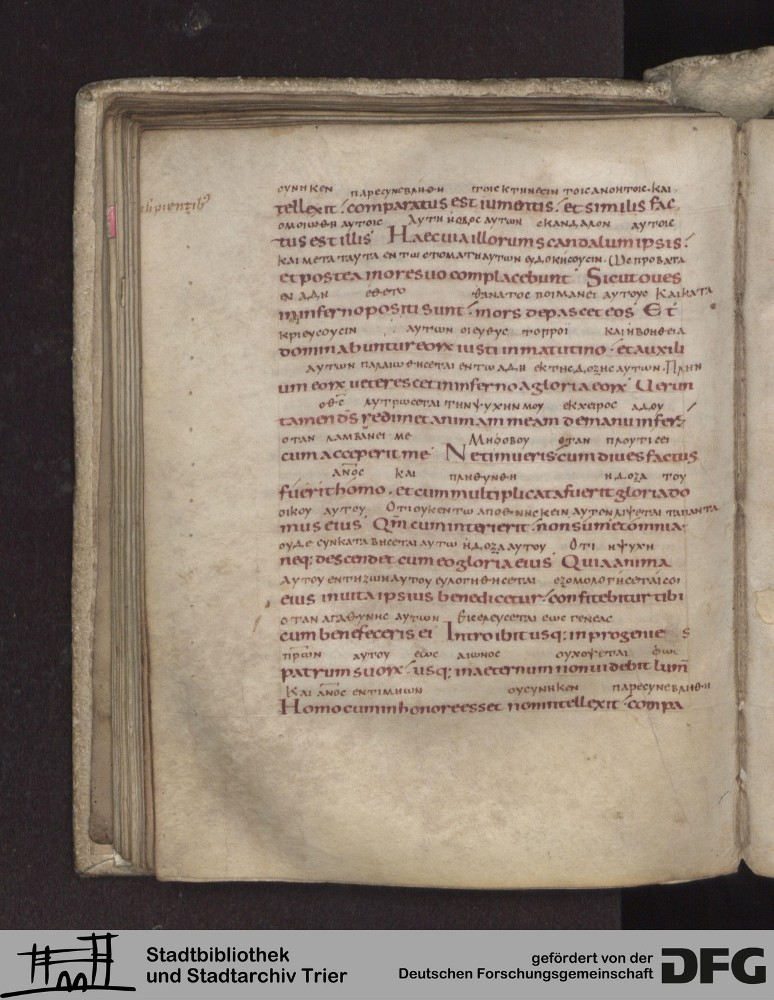 ϹΥΝΗΚΕΝ ΠΑΡΕϹΥΝΕΒΛΗΘΗ ΤΟΙϹ ΚΤΗΝΕϹΙΝ ΤΟΙϹ ΑΝΟΗΤΟΙϹ· ΚΑΙ
tellexit· comparatus est iumentis· et similis fac
ΟΜΟΙΩΘΗ ΑΥΤΟΙϹ ΑΥΤΗ Η ΟΔΟϹ ΑΥΤΩΝ ϹΚΑΝΔΑΛΟΝ ΑΥΤΟΙϹ
tus est illis Haec uia illorum scandalum ipsis·
ΚΑΙ ΜΕΤΑ ΤΑΥΤΑ ΕΝ ΤΩ ϹΤΟΜΑΤΗ ΑΥΤΩΝ ΕΥΔΟΚΗϹΟΥϹΙΝ· ΩϹ ΠΡΟΒΑΤΑ
et postea in ore suo complacebunt Sicut oues
ΕΝ ΑΔΗ ΕΘΕΤΟ ΘΑΝΑΤΟϹ ΠΟΙΜΑΝΕΙ ΑΥΤΟΥϹ ΚΑΙ ΚΑΤΑ
in inferno positi sunt· mors depascet eos Et
ΚΡΙΕΥϹΟΥϹΙΝ ΑΥΤΩΝ ΟΙ ΕΥΘΥϹ ΤΟ ΠΡΟΪ ΚΑΙ Η ΒΟΗΘΕΙΑ
dominabuntur eorx iusti in matutino· et auxili
ΑΥΤΩΝ ΠΑΛΑΙΩΘΗϹΕΤΑΙ ΕΝ ΤΩ ΑΔΗ ΕΚ ΤΗϹ ΔΟΞΗϹ ΑΥΤΩΝ· ΠΛΗΝ
um eorx ueterescet in inferno a gloria eorx Uerum
Ο Θ̅Ϲ̅ ΛΥΤΡΩϹΕΤΑΙ ΤΗΝ ΨΥΧΗΝ ΜΟΥ ΕΚ ΧΕΙΡΟϹ ΑΔΟΥ
tamen d̅s̅ redimet animam meam de manu inferi
ΟΤΑΝ ΛΑΜΒΑΝΕΙ ΜΕ ΜΗ ΦΟΒΟΥ ΟΤΑΝ ΠΛΟΥΤΙϹΕΙ
cum acceperit me Ne timueris· cum diues factus
ΑΝ̅ΟϹ ΚΑΙ ΠΛΗΘΥΝΘΗ Η ΔΟΞΑ ΤΟΥ
fuerit homo· et cum multiplicata fuerit gloria do
ΟΙΚΟΥ ΑΥΤΟΥ ΟΤΙ ΟΥΚ ΕΝ ΤΩ ΑΠΟΘΝΗϹΚΕΙΝ ΑΥΤΟΝ ΛΙΨΕΤΑΙ ΤΑ ΠΑΝΤΑ
mus eius Qm̅ cum interierit· non sumet omnia·
ΟΥΔΕ ϹΥΝΚΑΤΑΒΗϹΕΤΑΙ ΑΥΤΩ Η ΔΟΞΑ ΑΥΤΟΥ ΟΤΙ Η ΨΥΧΗ
neq; descendet cum eo gloria eius Quia anima
ΑΥΤΟΥ ΕΝ ΤΗ ΖΩΗ ΑΥΤΟΥ ΕΥΛΟΓΗΘΗϹΕΤΑΙ ΕΞΟΜΟΛΟΓΗϹΕΤΑΙ ϹΟΙ
eius in uita ipsius benedicetur· confitebitur tibi
ΟΤΑΝ ΑΓΑΘΥΝΗϹ ΑΥΤΩΝ ΕΙϹΕΛΕΥϹΕΤΑΙ ΕΩϹ ΓΕΝΕΑϹ
cum benefeceris ei Introibit usq; in progenie s
ΠΡ̅ΩΝ ΑΥΤΟΥ ΕΩϹ ΑΙΩΝΟϹ ΟΥΧ ΟΨΕΤΑΙ ΦΩϹ
patrum suorx· usq; in aeternum non uidebit lum̅
ΚΑΙ ΑΝ̅ΟϹ ΕΝ ΤΙΜΗ ΩΝ ΟΥ ϹΥΝΗΚΕΝ ΠΑΡΕϹΥΝΕΒΛΗΘΗ
Homo cum in honore esset non intellexit· compa
Stadtbibliothek
und Stadtarchiv Trier
gefördert von der
Deutschen Forschungsgemeinschaft
DFG